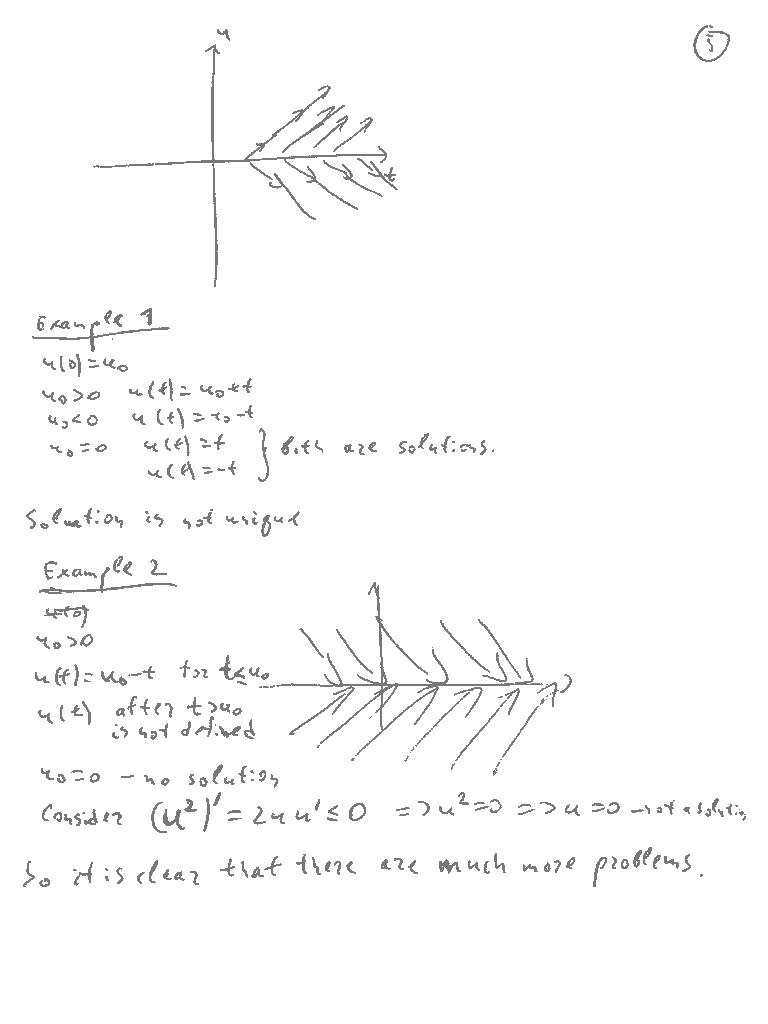 5
u
t
Example 1
u(0)=u₀
u₀>0 u(t)=u₀+t
u₀<0 u(t)=u₀-t
u₀=0 u(t)=t
u(t)=-t } both are solutions.
Solution is not unique
Example 2
u(0)
u₀>0
u(t)=u₀-t for t≤u₀
u(t) after t>u₀
is not defined
u₀=0 - no solution
Consider (u²)'=2uu'≤0 => u²=0 => u=0 - not a solution
So it is clear that there are much more problems.